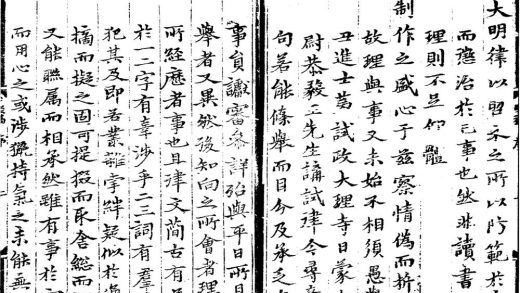 大明律以
之所以防範於
而應治於已事也然非讀書
理則不足仰體
制作之盛心于茲察情偽而折
故理與事又未始不相須愚與
丑進士 試政大理寺日蒙
尉恭毅王先生講試律令尋
句若能條舉而目分及承乏
事 讞審參詳殆與平日所
舉者又異然後知向之所會者理
所經歷者事也且律文簡古有
於一二字有辜涉乎二三詞有羣
犯其及即若 疑似於
摘而擬之固可提掇而取舍總而
又能聯属而相承然雖有事於
而用心之或涉獵持氣之未能無